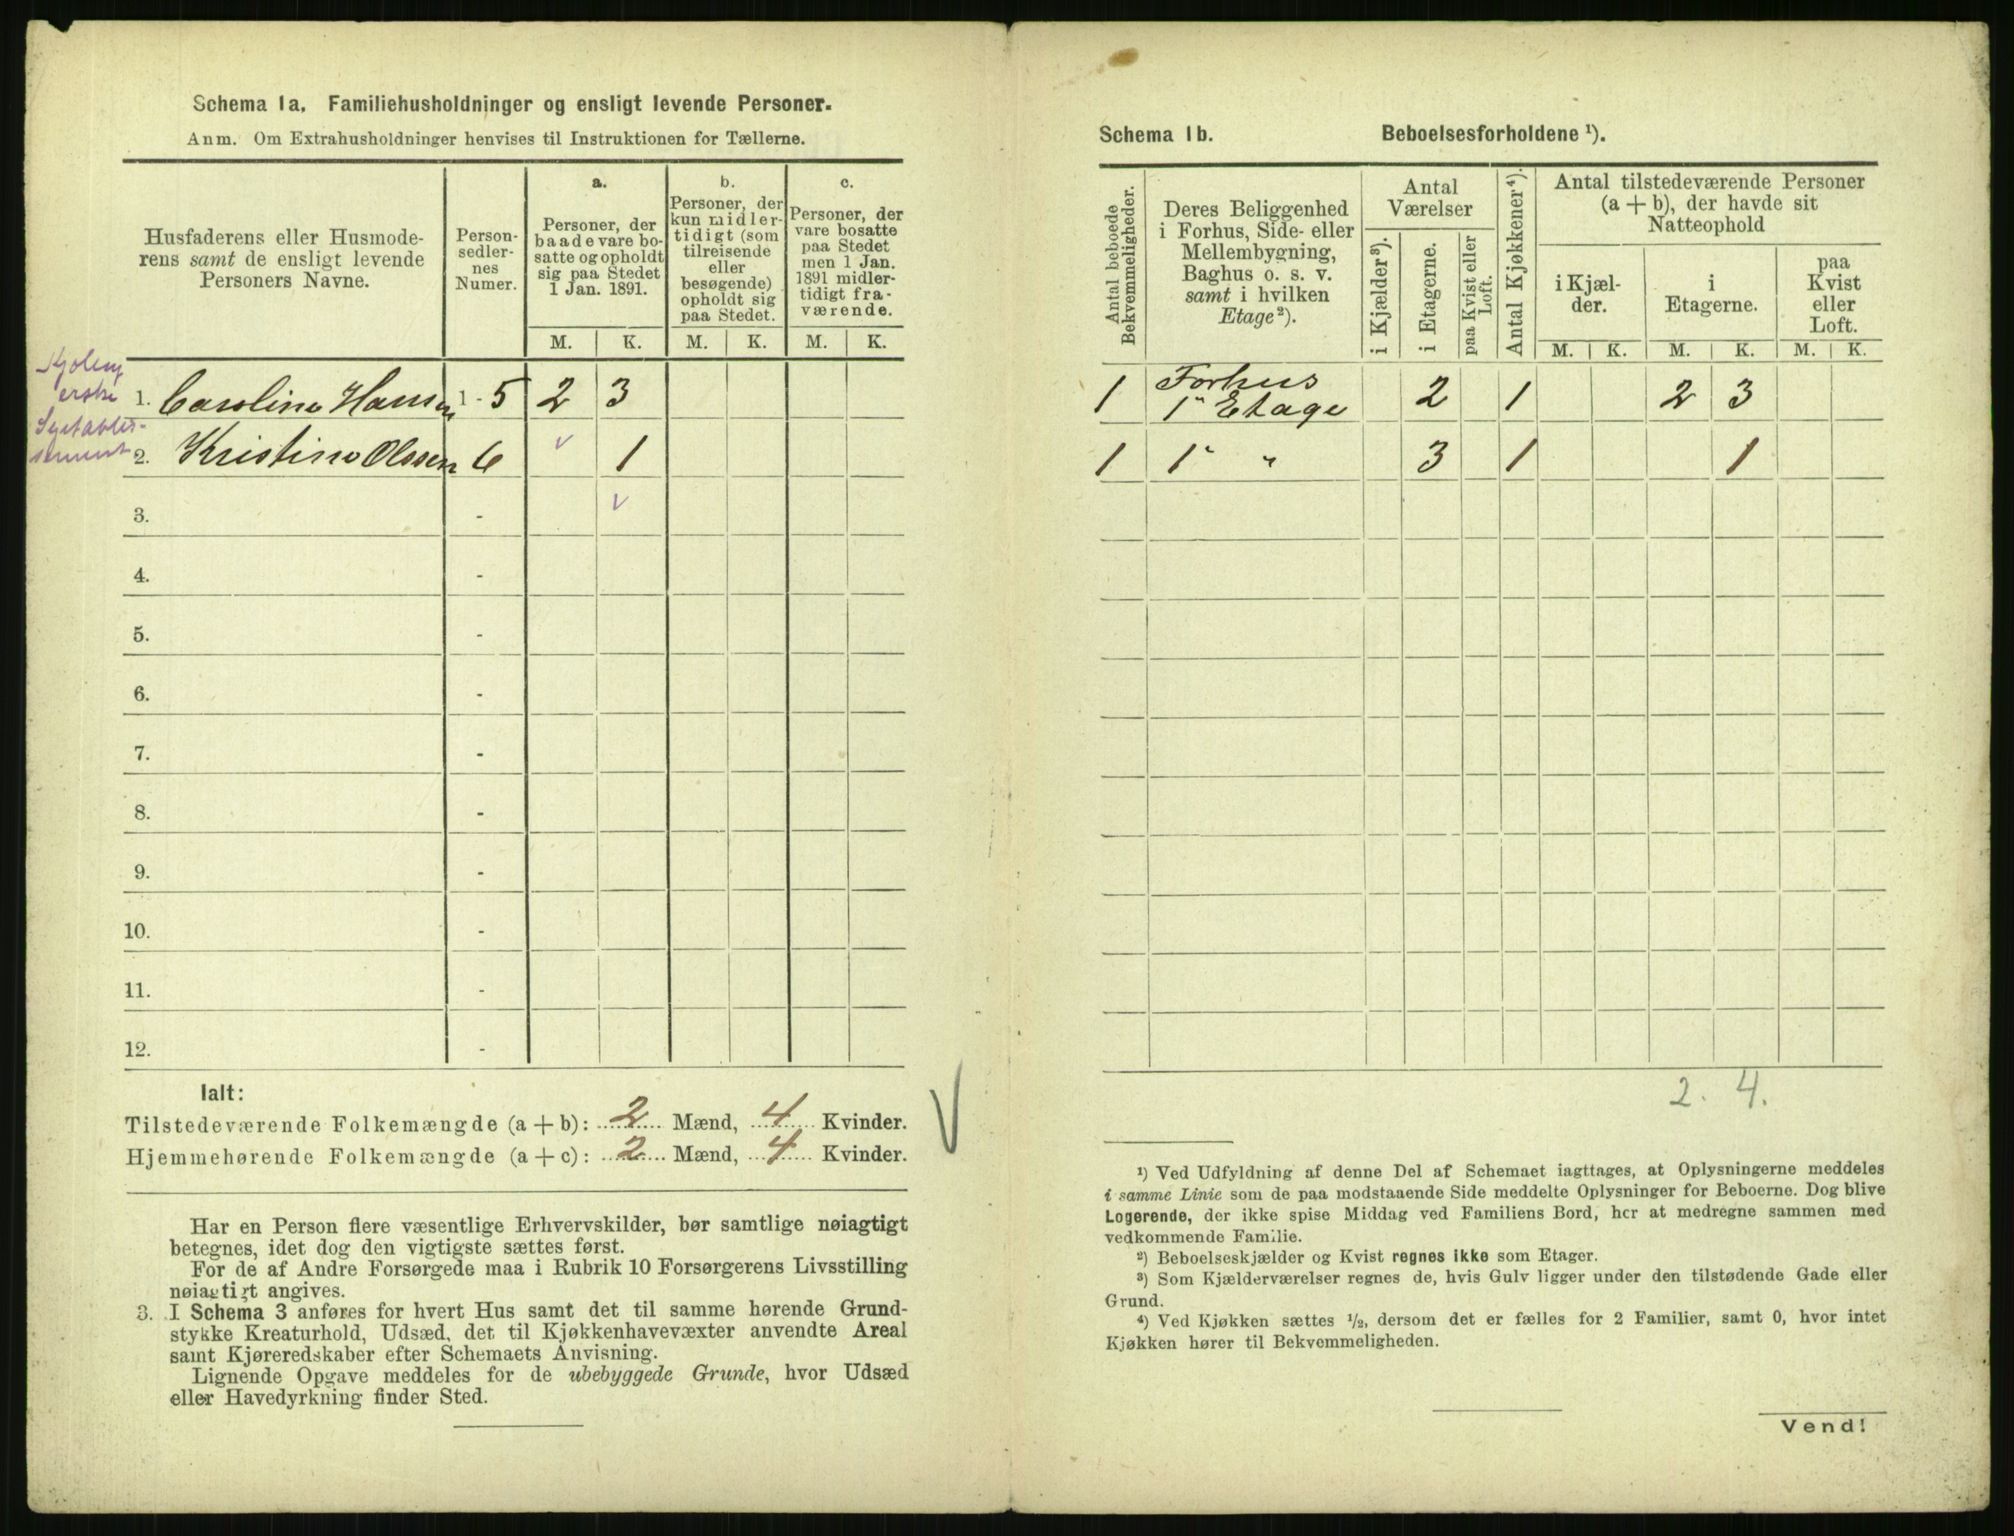 Schema 1a. Familiehusholdninger og ensligt levende Personer.
Anm. Om Extrahusholdninger henvises til Instruktionen for Tællerne.
Husfaderens eller Husmode-
rens samt de ensligt levende
Personers Navne.
Person-
sedler-
nes
Numer.
a.
Personer, der
baade vare bo-
satte og opholdt
sig paa Stedet
1 Jan. 1891.
b.
Personer, der
kun midler-
tidigt (som
tilreisende
eller
besøgende)
opholdt sig
paa Stedet.
c.
Personer, der
vare bosatte
paa Stedet
men 1 Jan.
1891 midler-
tidigt fra-
værende.
M. K. M. K. M. K.
1. Caroline Hansen 1 - 5 2 3
2. Kristine Olssen 6 1
3. -
4. -
5. -
6. -
7. -
8. -
9. -
10. -
11. -
12. -
Ialt:
Tilstedeværende Folkemængde (a + b): 2 Mænd, 4 Kvinder.
Hjemmehørende Folkemængde (a + c): 2 Mænd, 4 Kvinder.
Har en Person flere væsentlige Erhvervskilder, bør samtlige nøiagtigt
betegnes, idet dog den vigtigste sættes først.
For de af Andre Forsørgede maa i Rubrik 10 Forsørgerens Livsstilling
nøiagtigt angives.
3. I Schema 3 anføres for hvert Hus samt det til samme hørende Grund-
stykke Kreaturhold, Udsæd, det til Kjøkkenhavevæxter anvendte Areal
samt Kjøreredskaber efter Schemaets Anvisning.
Lignende Opgave meddeles for de ubebyggede Grunde, hvor Udsæd
eller Havedyrkning finder Sted.
Schema 1b. Beboelsesforholdene ¹).
Antal beboede
Bekvemmeligheder.
Deres Beliggenhed
i Forhus, Side- eller
Mellembygning,
Baghus o. s. v.
samt i hvilken
Etage²).
Antal
Værelser
i Kjælder³).
i Etagerne.
paa Kvist eller
Loft.
Antal Kjøkkener⁴).
Antal tilstedeværende Personer
(a + b), der havde sit
Natteophold
i Kjæl-
der.
i
Etagerne.
paa
Kvist
eller
Loft.
M. K. M. K. M. K.
1 Forhus
1" Etage 2 1 2 3
1 1" " 3 1 1
2. 4.
¹) Ved Udfyldning af denne Del af Schemaet iagttages, at Oplysningerne meddeles
i samme Linie som de paa modstaaende Side meddelte Oplysninger for Beboerne. Dog blive
Logerende, der ikke spise Middag ved Familiens Bord, her at medregne sammen med
vedkommende Familie.
²) Beboelseskjælder og Kvist regnes ikke som Etager.
³) Som Kjælderværelser regnes de, hvis Gulv ligger under den tilstødende Gade eller
Grund.
⁴) Ved Kjøkken sættes ½, dersom det er fælles for 2 Familier, samt 0, hvor intet
Kjøkken hører til Bekvemmeligheden.
Vend!